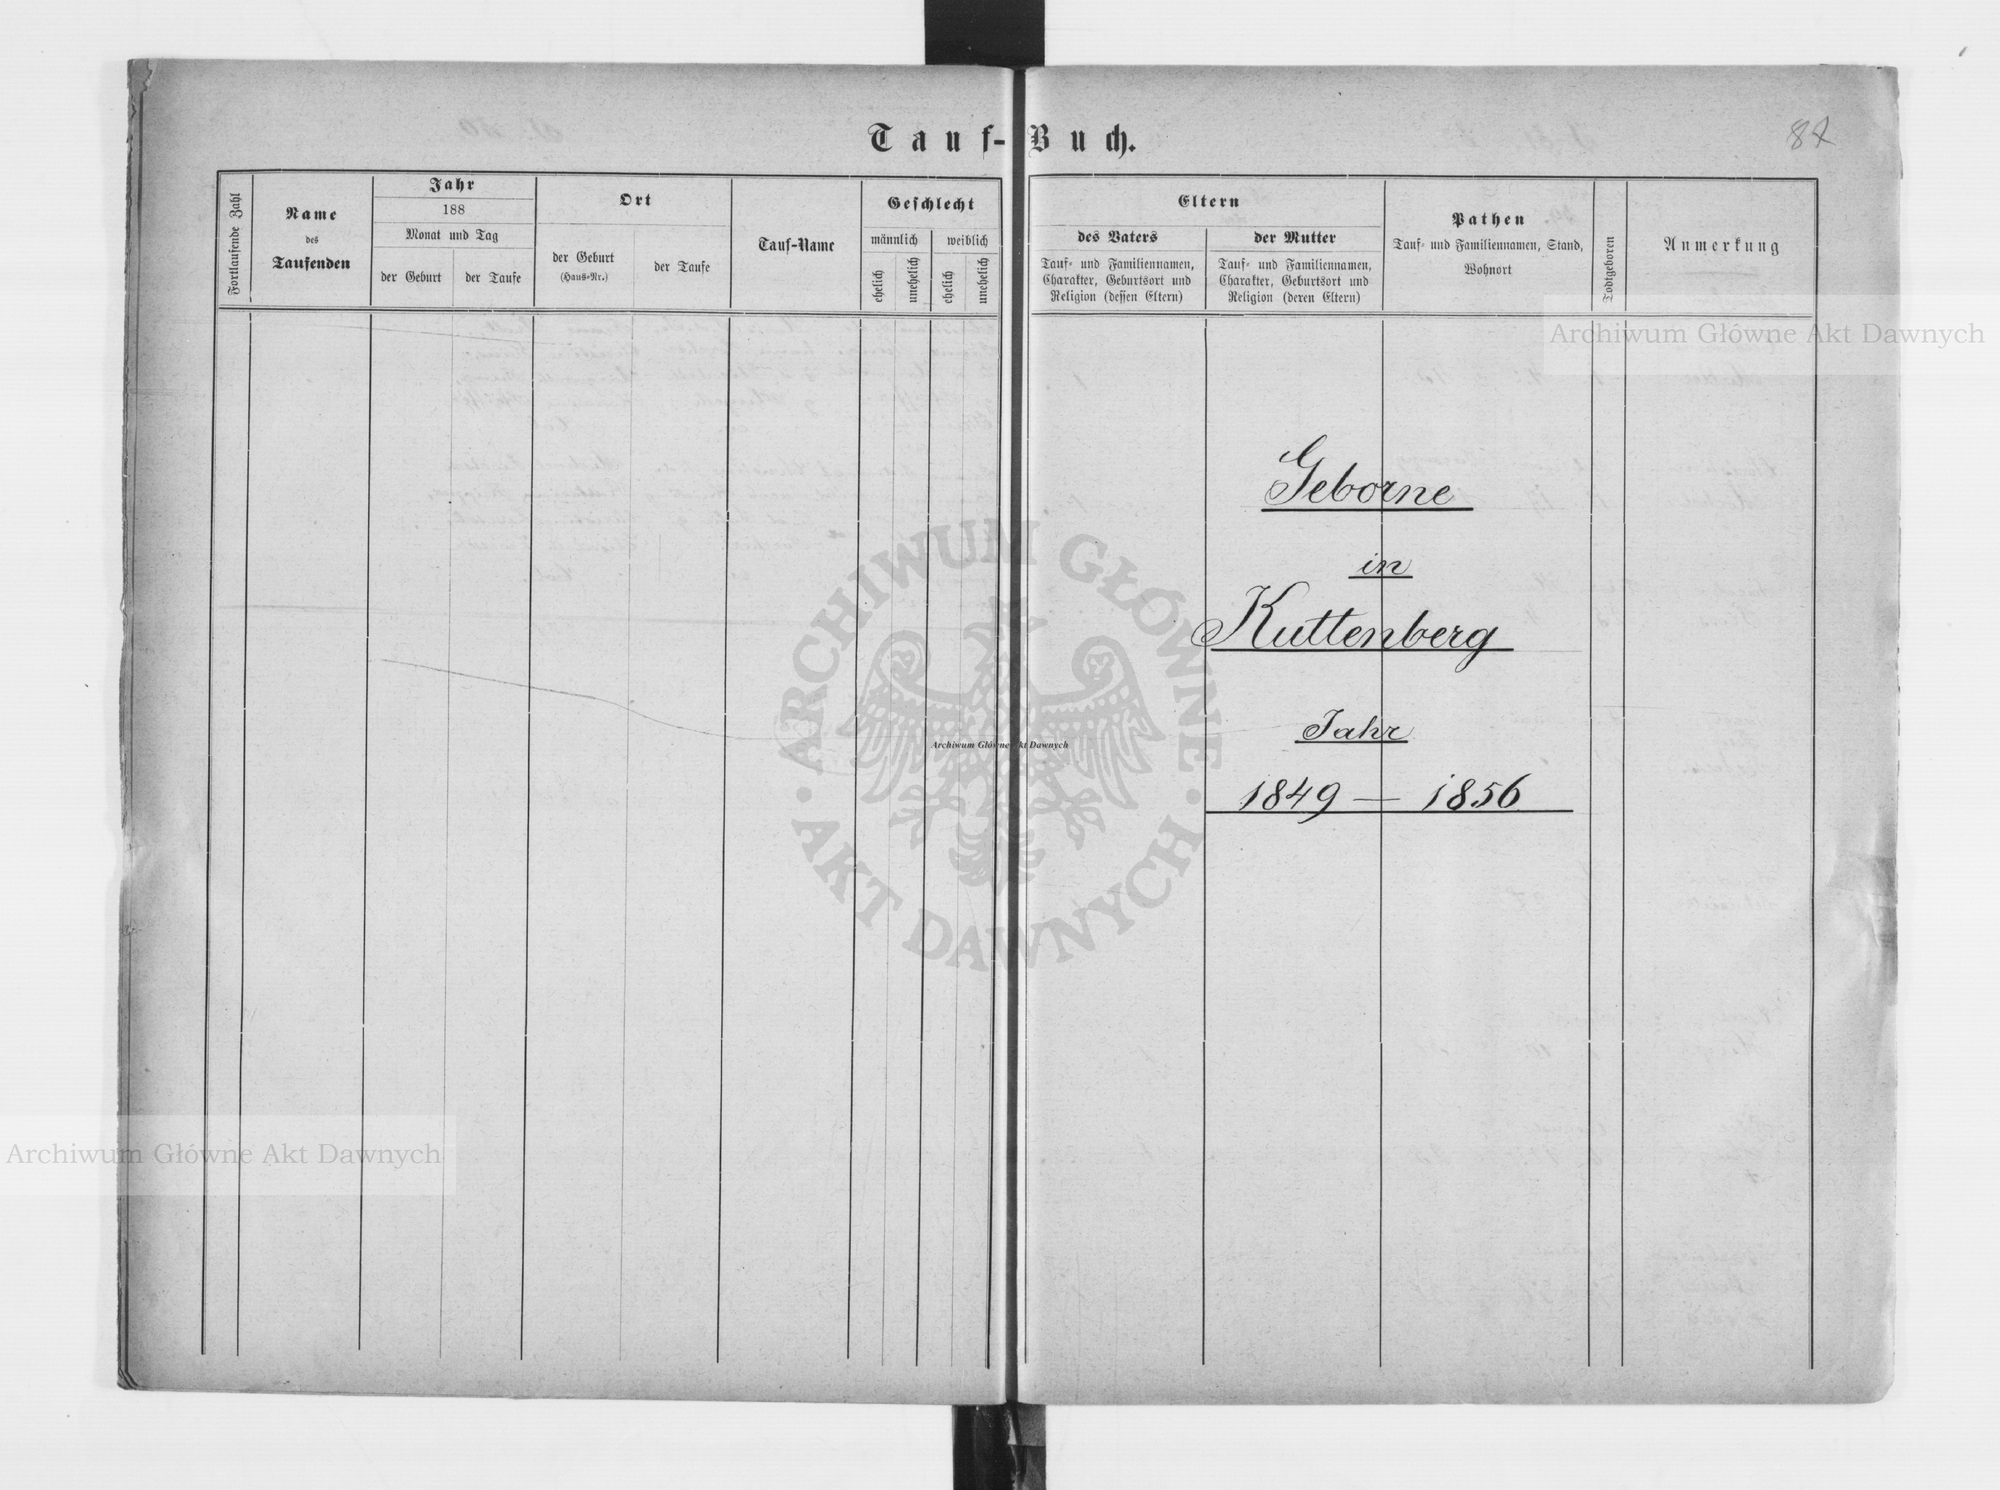 Tauf-Buch.
87
Fortlaufende Zahl
Name
des
Taufenden
Jahr
188
Monat und Tag
der Geburt
der Taufe
Ort
der Geburt
(Haus-Nr.)
der Taufe
Tauf-Name
Geschlecht
männlich
weiblich
ehelich
unehelich
ehelich
unehelich
Eltern
des Vaters
Tauf- und Familiennamen,
Charakter, Geburtsort und
Religion (dessen Eltern)
der Mutter
Tauf- und Familiennamen,
Charakter, Geburtsort und
Religion (deren Eltern)
Pathen
Tauf- und Familiennamen, Stand,
Wohnort
Todtgeboren
Anmerkung
Archiwum Główne Akt Dawnych
Geborne
in
Kuttenberg
Jahr
1849 — 1856
ARCHIWUM GŁÓWNE
AKT DAWNYCH
Archiwum Główne Akt Dawnych
Archiwum Główne Akt Dawnych